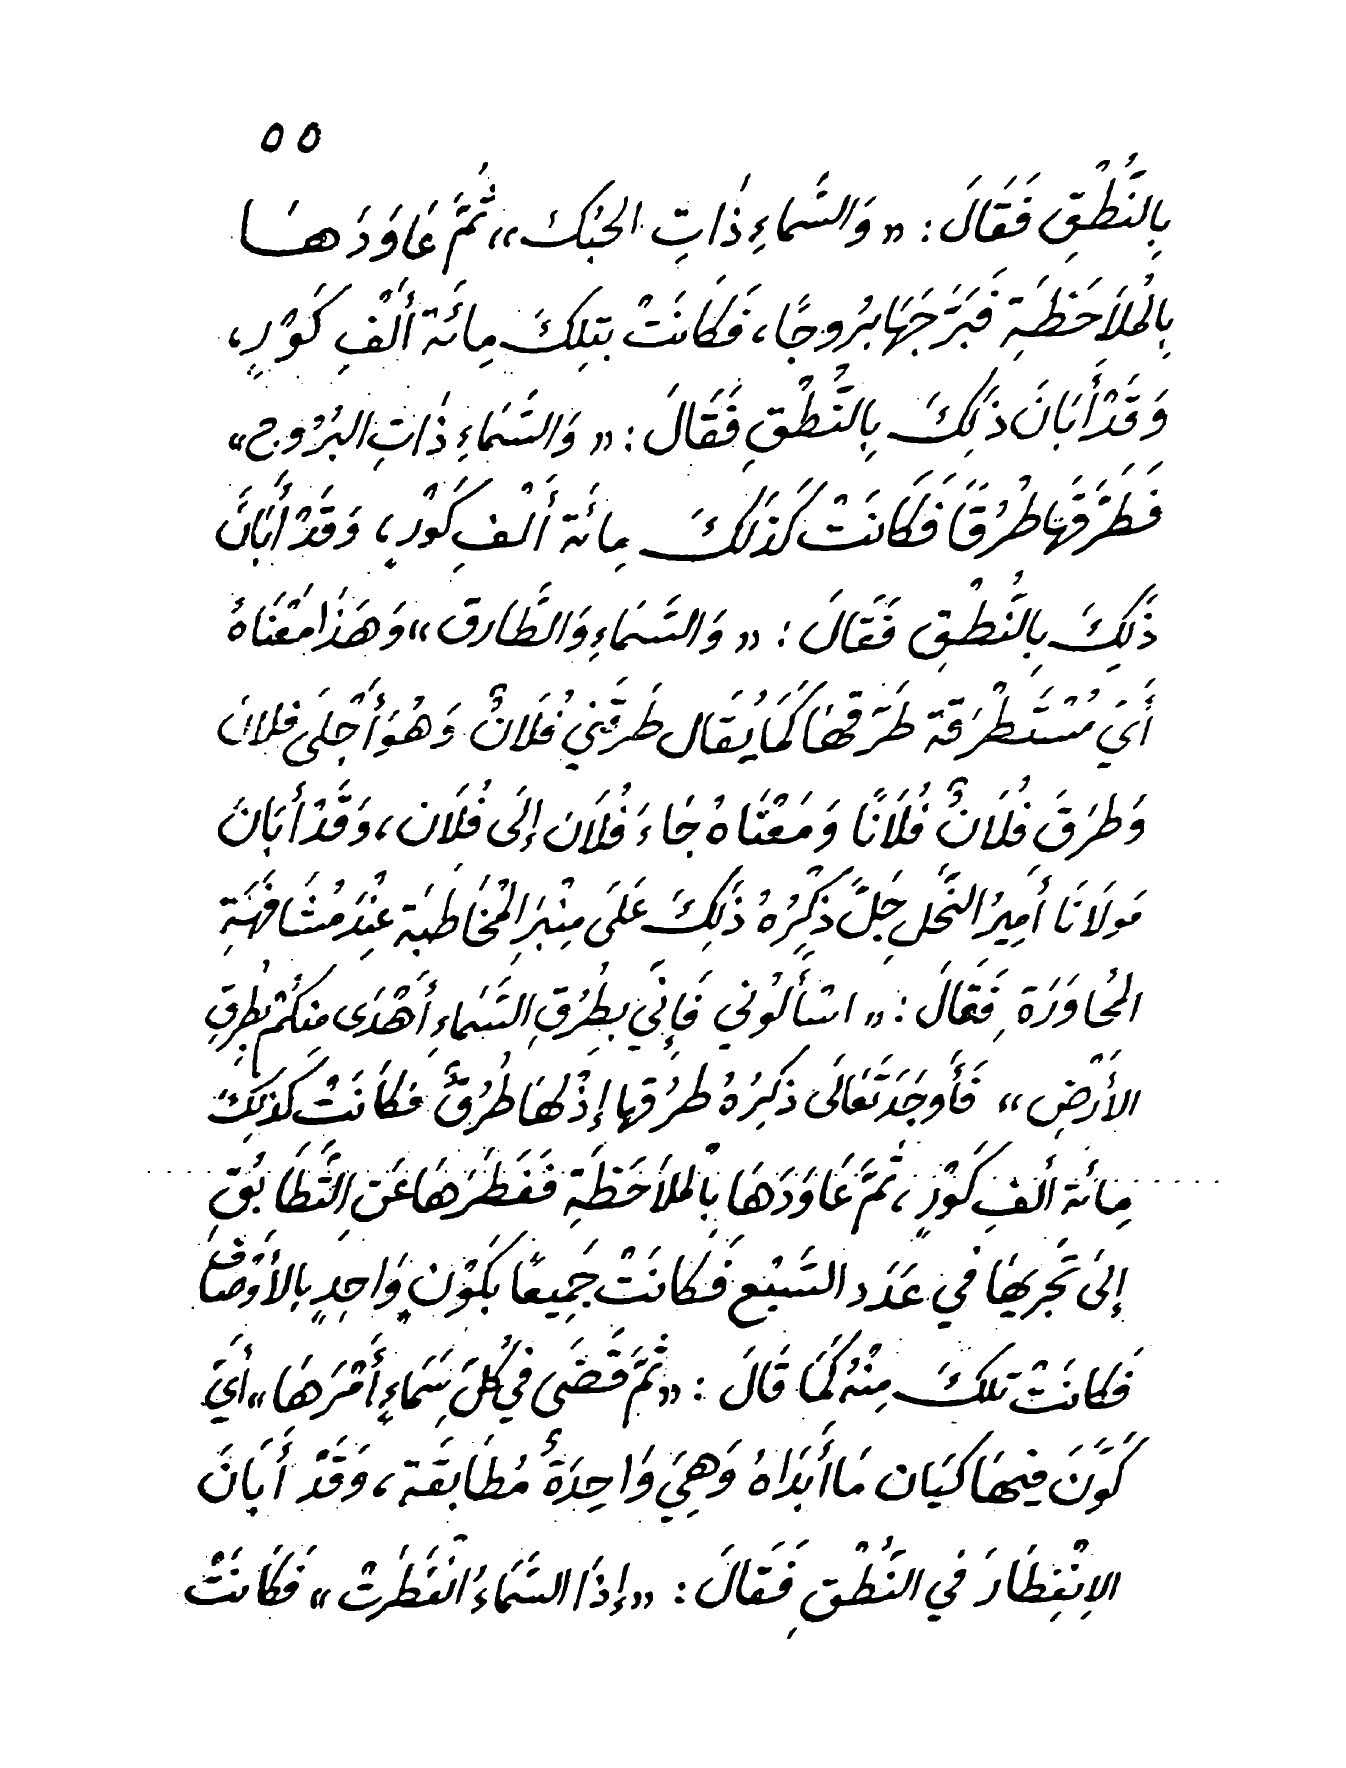 ٥٥
بِالنُّطْقِ فَقَالَ : « وَالسَّمَاءِ ذَاتِ الحُبُكِ » ثُمَّ عَاوَدَهَا
بِالمُلَاحَظَةِ فَبَرَّجَهَا بُرُوجًا ، فَكَانَتْ بِتِلكَ مِائَة أَلْفِ كَوْرٍ ،
وَقَدْ أَبَانَ ذَلِكَ بِالنُّطْقِ فَقَالَ : « وَالسَّمَاءِ ذَاتِ البُرُوجِ »
فَطَرَّقَهَا طُرُقًا فَكَانَتْ كَذَلكَ مِائَة أَلْفِ كَوْرٍ ، وَقَدْ أَبَانَ
ذَلِكَ بِالنُّطْقِ فَقَالَ : « وَالسَّمَاءِ وَالطَّارق » وَهَذَا مَعْنَاهُ
أَيَ مُسْتَطْرَقَة طَرَّقهَا كَمَا يُقَال طَرَقَني فُلَانٌ وَهُوَ أَجْلَى فلان
وَطَرَقَ فُلَانٌ فُلَانًا وَمَعْنَاهُ جَاءَ فُلَانَ إِلَى فُلَان ، وَقَدْ أَبَانَ
مَولَانَا أَمِيرُ النَّحلِ جَلَّ ذِكْرُهُ ذَلِكَ عَلَى مِنْبَرِ المُخَاطَبَة عِنْدَ مُشَافَهَةِ
المُحَاوَرَة فَقَالَ : « اسْأَلُوني فَإِنِّي بِطُرُقِ السَّمَاءِ أَهْدَى مِنكُمْ بِطُرقِ
الأَرْضِ » فَأَوجَدَ تَعَالَى ذِكرُهُ طَرُقها إِذْ لهَا طُرُقٌ فَكَانَتْ كَذَلِكَ
مِائَة أَلفِ كَوْرٍ ، ثُمَّ عَاوَدَهَا بِالمُلَاحَظَةِ فَفَطَرَهَا عَنِ التَّطَابُقِ
إِلىَ تَجرِيهَا في عَدَد السَّبْعِ فَكَانَتْ جَمِيعًا بَكَوْنٍ وَاحِدٍ بِالأَوْصَافِ
فَكَانَتْ تلكَ مِنْهُ كَمَا قَالَ : « ثُمَّ قَضَى في كُلِّ سَمَاءٍ أَمْرَهَا » أَيَ
كَوَّنَ فيهَا كَيَان مَا أَبْدَاهُ وَهِيَ وَاحِدَةٌ مُطَابَقَة ، وَقَدْ أَبَانَ
الاِنْفِطَارَ في النُّطْقِ فَقَالَ : « إِذَا السَّمَاءُ انْفَطَرتْ » فَكَانَتْ